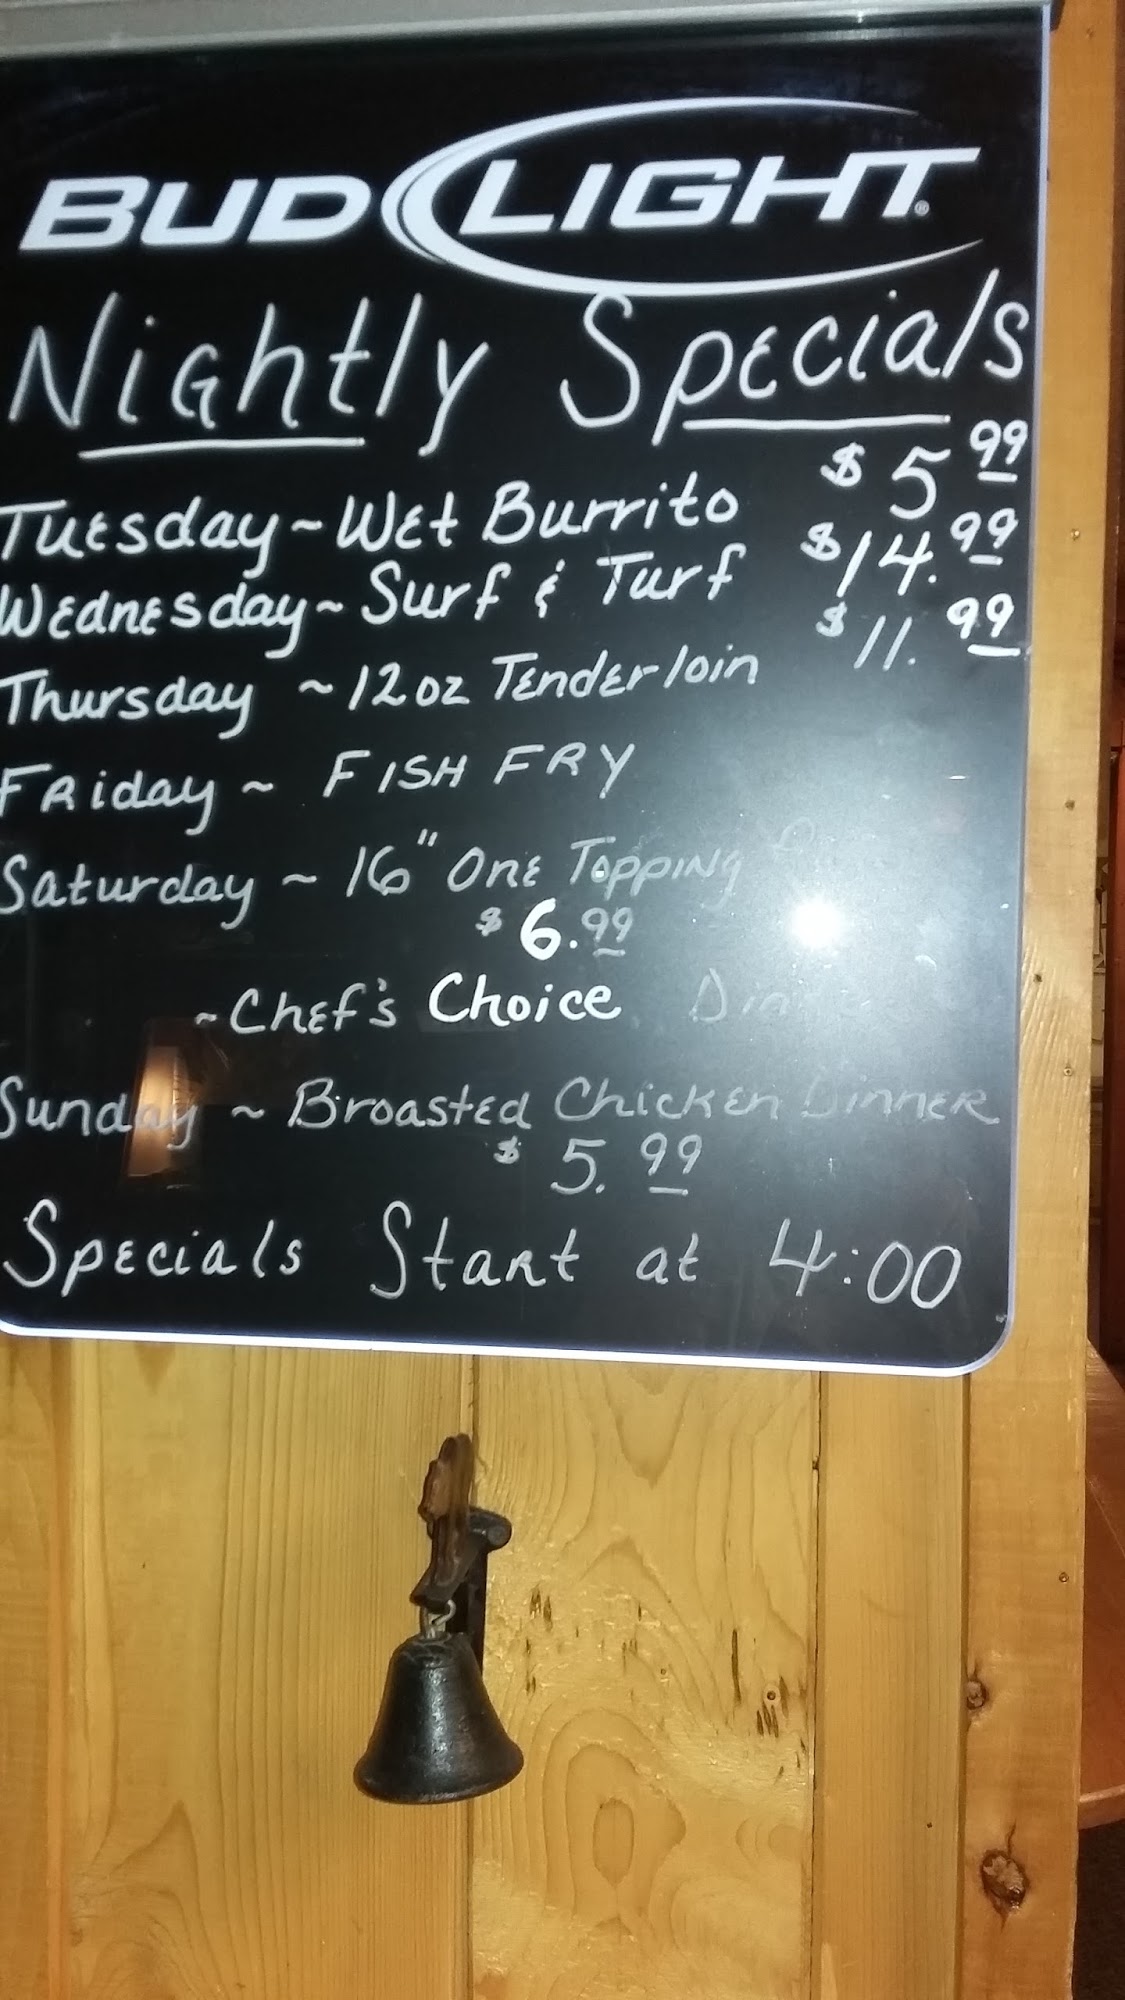 BUD LIGHT
Nightly Specials
Tuesday ~ Wet Burrito $5 99
Wednesday ~ Surf & Turf $14.99
Thursday ~ 12oz Tenderloin $11.99
Friday ~ FISH FRY
Saturday ~ 16" One Topping
$6.99
~ Chef's Choice
Sunday ~ Broasted Chicken Dinner
$5.99
Specials Start at 4:00